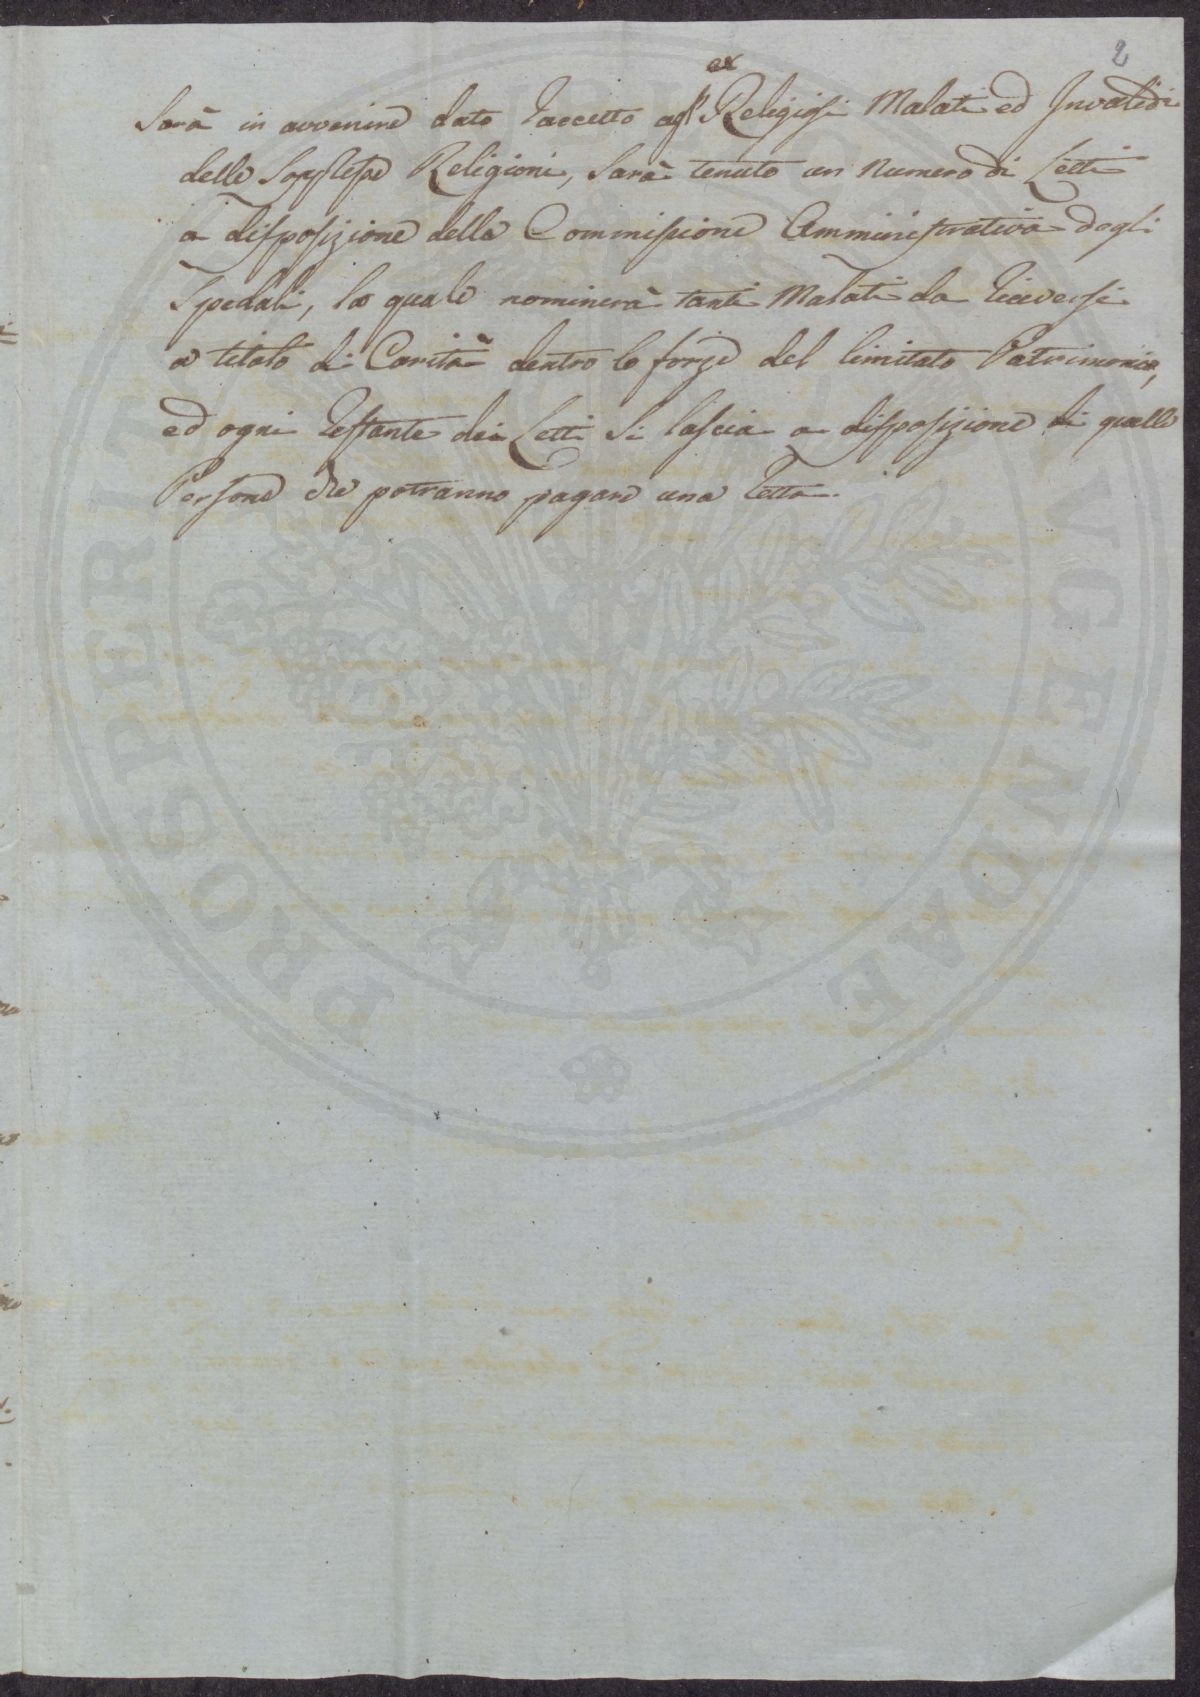 2
ex
Sarà in avvenire dato Raccetto agl' Religiosi Malati ed Invalidi
delle Soppresse Religioni, Sarà tenuto un Numero di Letti
a disposizione della Commissione Amministrativa degli
Spedali, la quale nominerà tanti Malati da Riceversi
a titolo di Carità dentro le forze del limitato Patrimonio,
ed ogni Restante dei Letti Si lascia a disposizione di quelle
Persone che potranno pagare una Retta.
PROSPERITATI PUBLICAE AUGENDAE